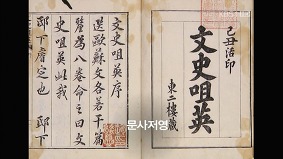 己丑活印
文史咀英
東二樓藏
文史咀英序
選歐蘇文各若干篇
釐為八卷命之曰文
史咀英此我
邸下睿定也 邸下
문사저영